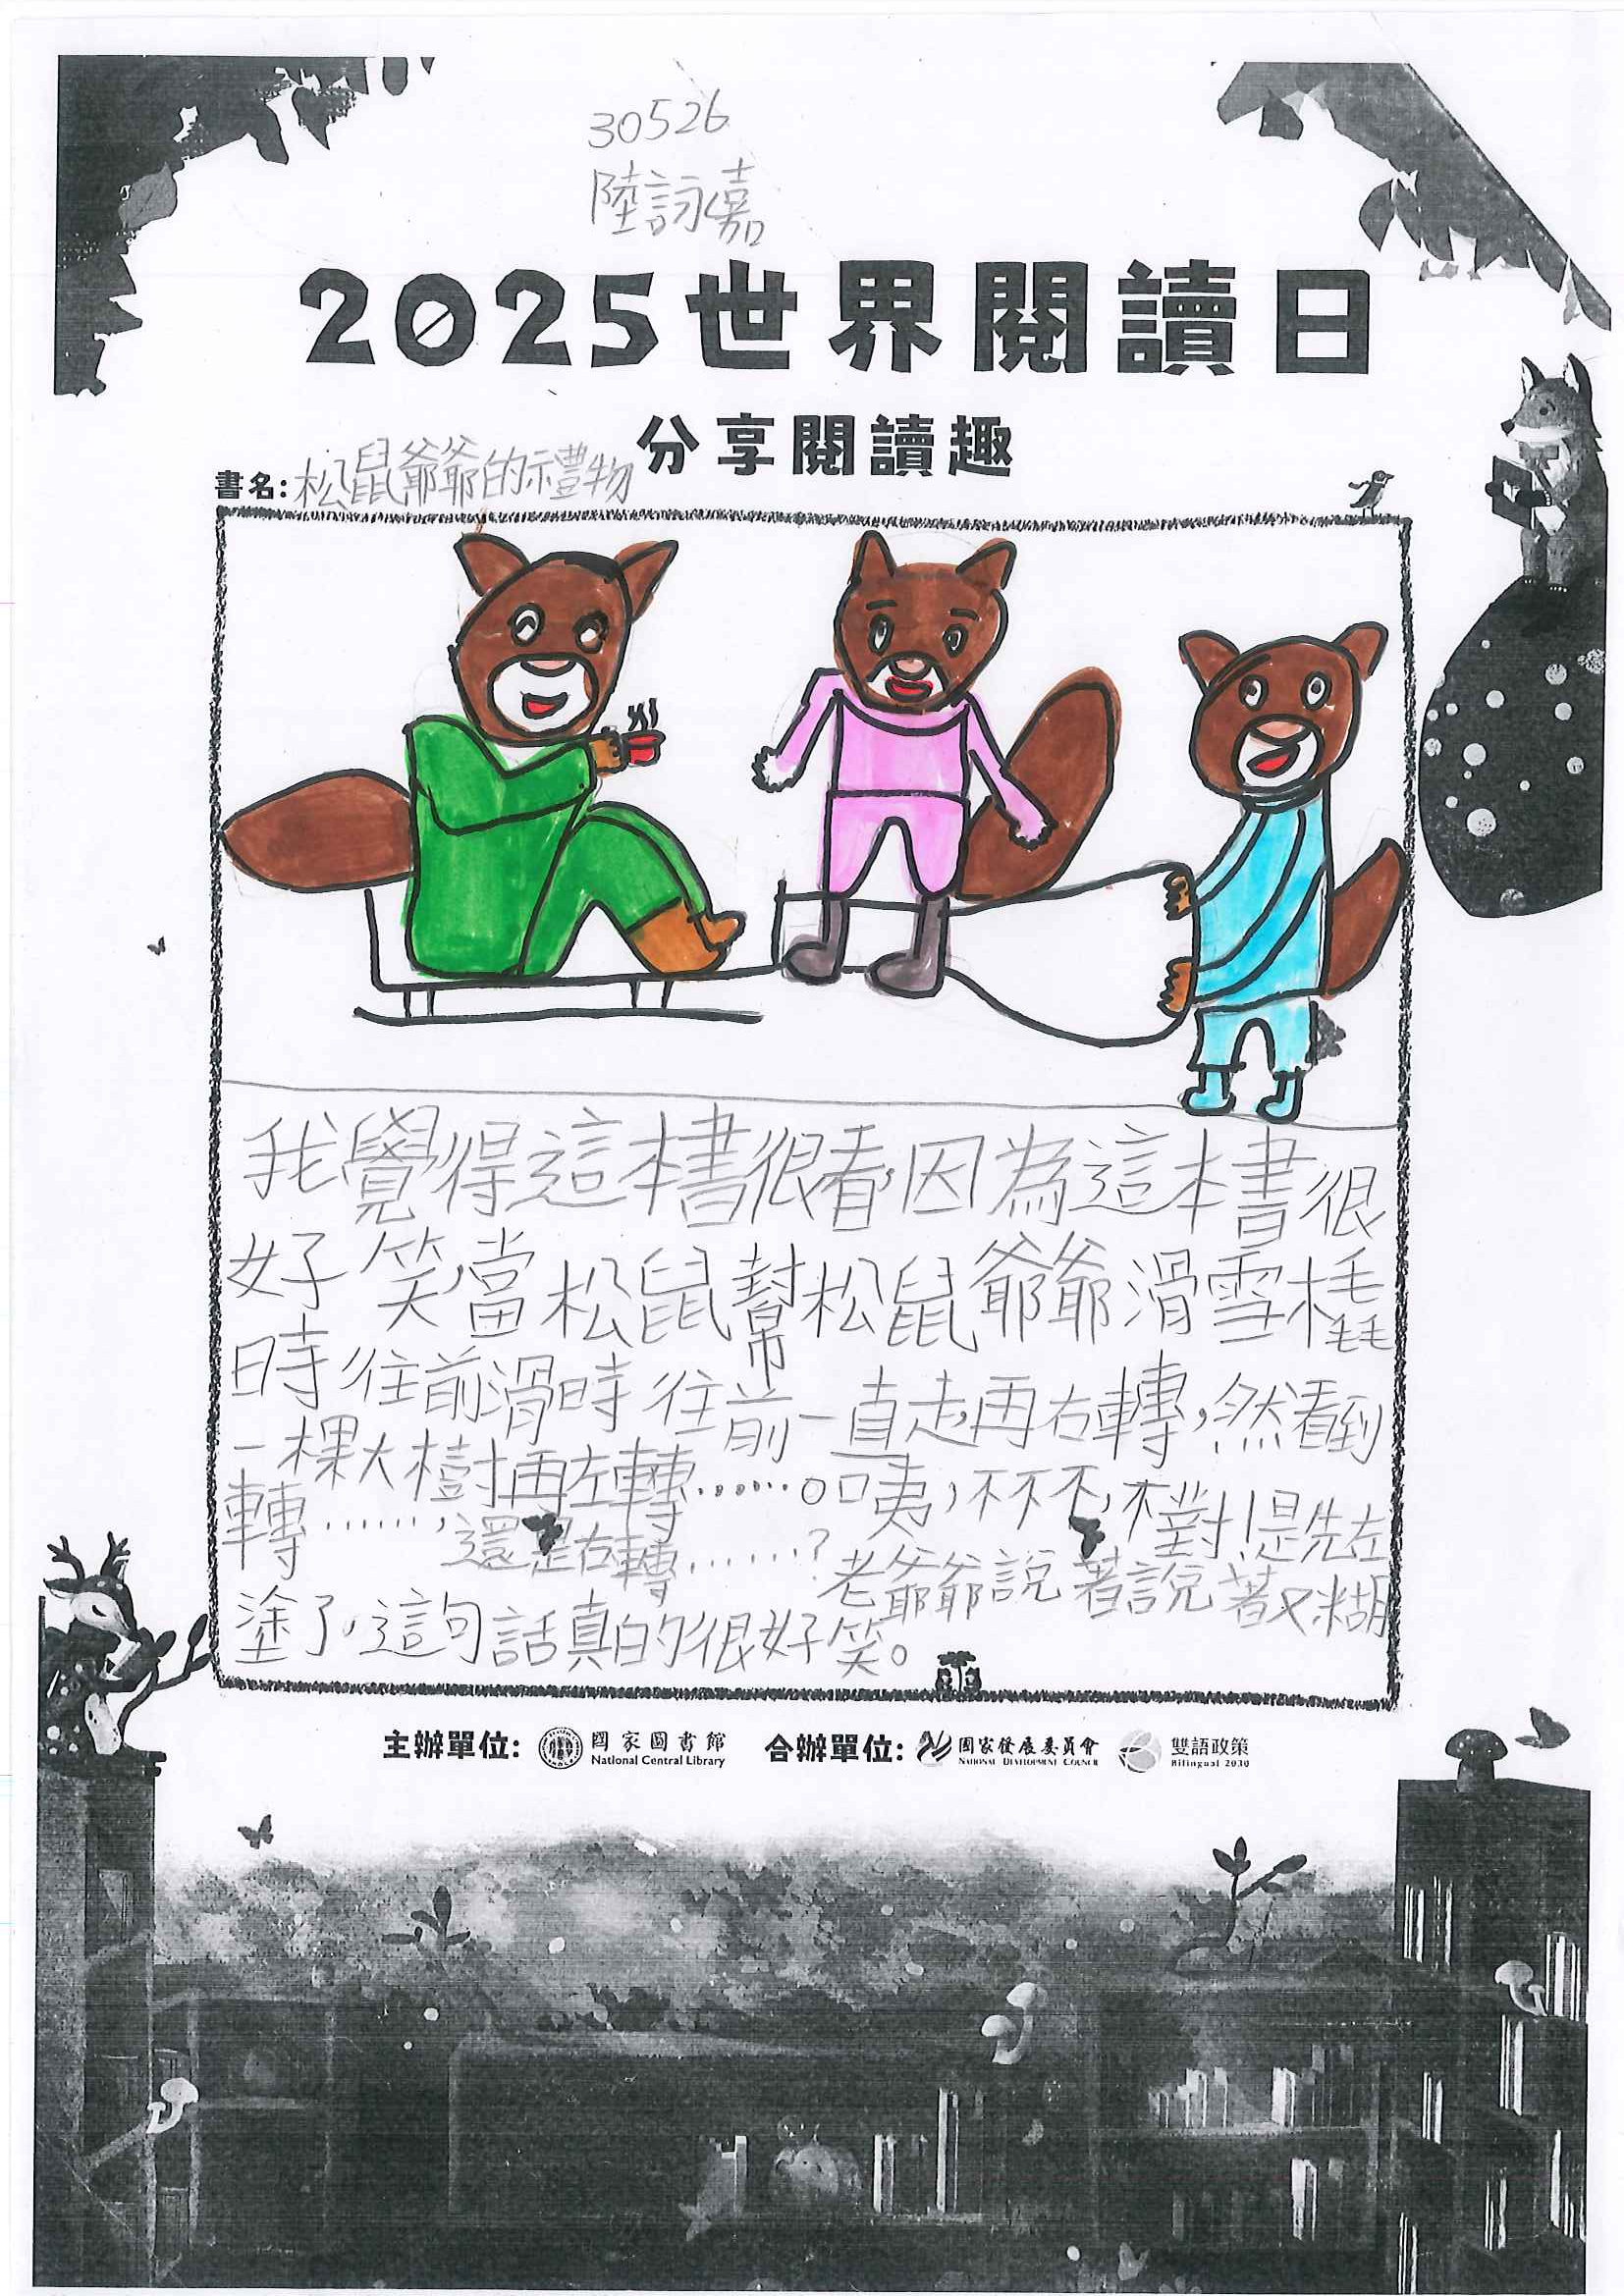 30526
陸詠嘉
2025世界閱讀日
分享閱讀趣
書名:松鼠爺爺的禮物
我覺得這本書很看,因為這本書很
好笑,當松鼠幫松鼠爺爺滑雪橇
時往前滑時往前一直走,再右轉,然看到
一棵大樹再左轉……。咦,不不不,不對!是先左
轉……,還是右轉……?老爺爺說著說著又糊
塗了,這句話真的很好笑。
主辦單位: 國家圖書館 National Central Library 合辦單位: 國家發展委員會 NATIONAL DEVELOPMENT COUNCIL 雙語政策 Bilingual 2030